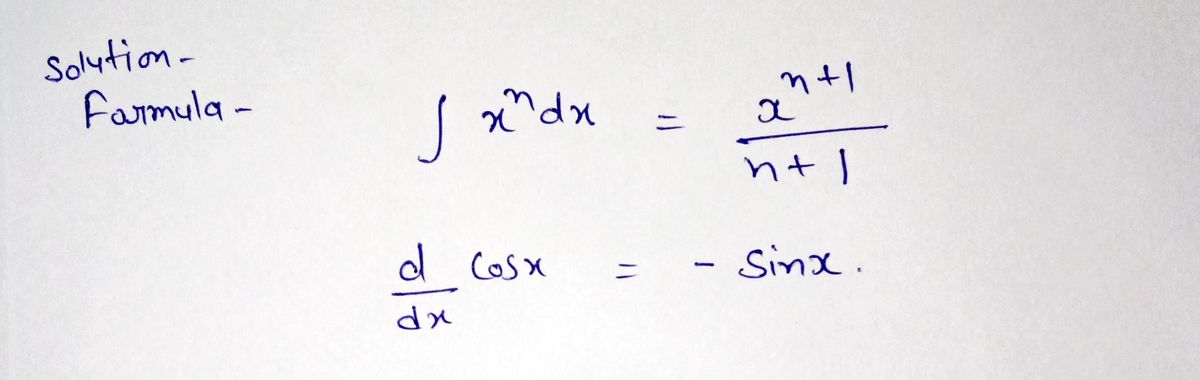 Solution -
Formula -
∫ xⁿ dx = xⁿ⁺¹ / n+1
d/dx cosx = - Sinx.